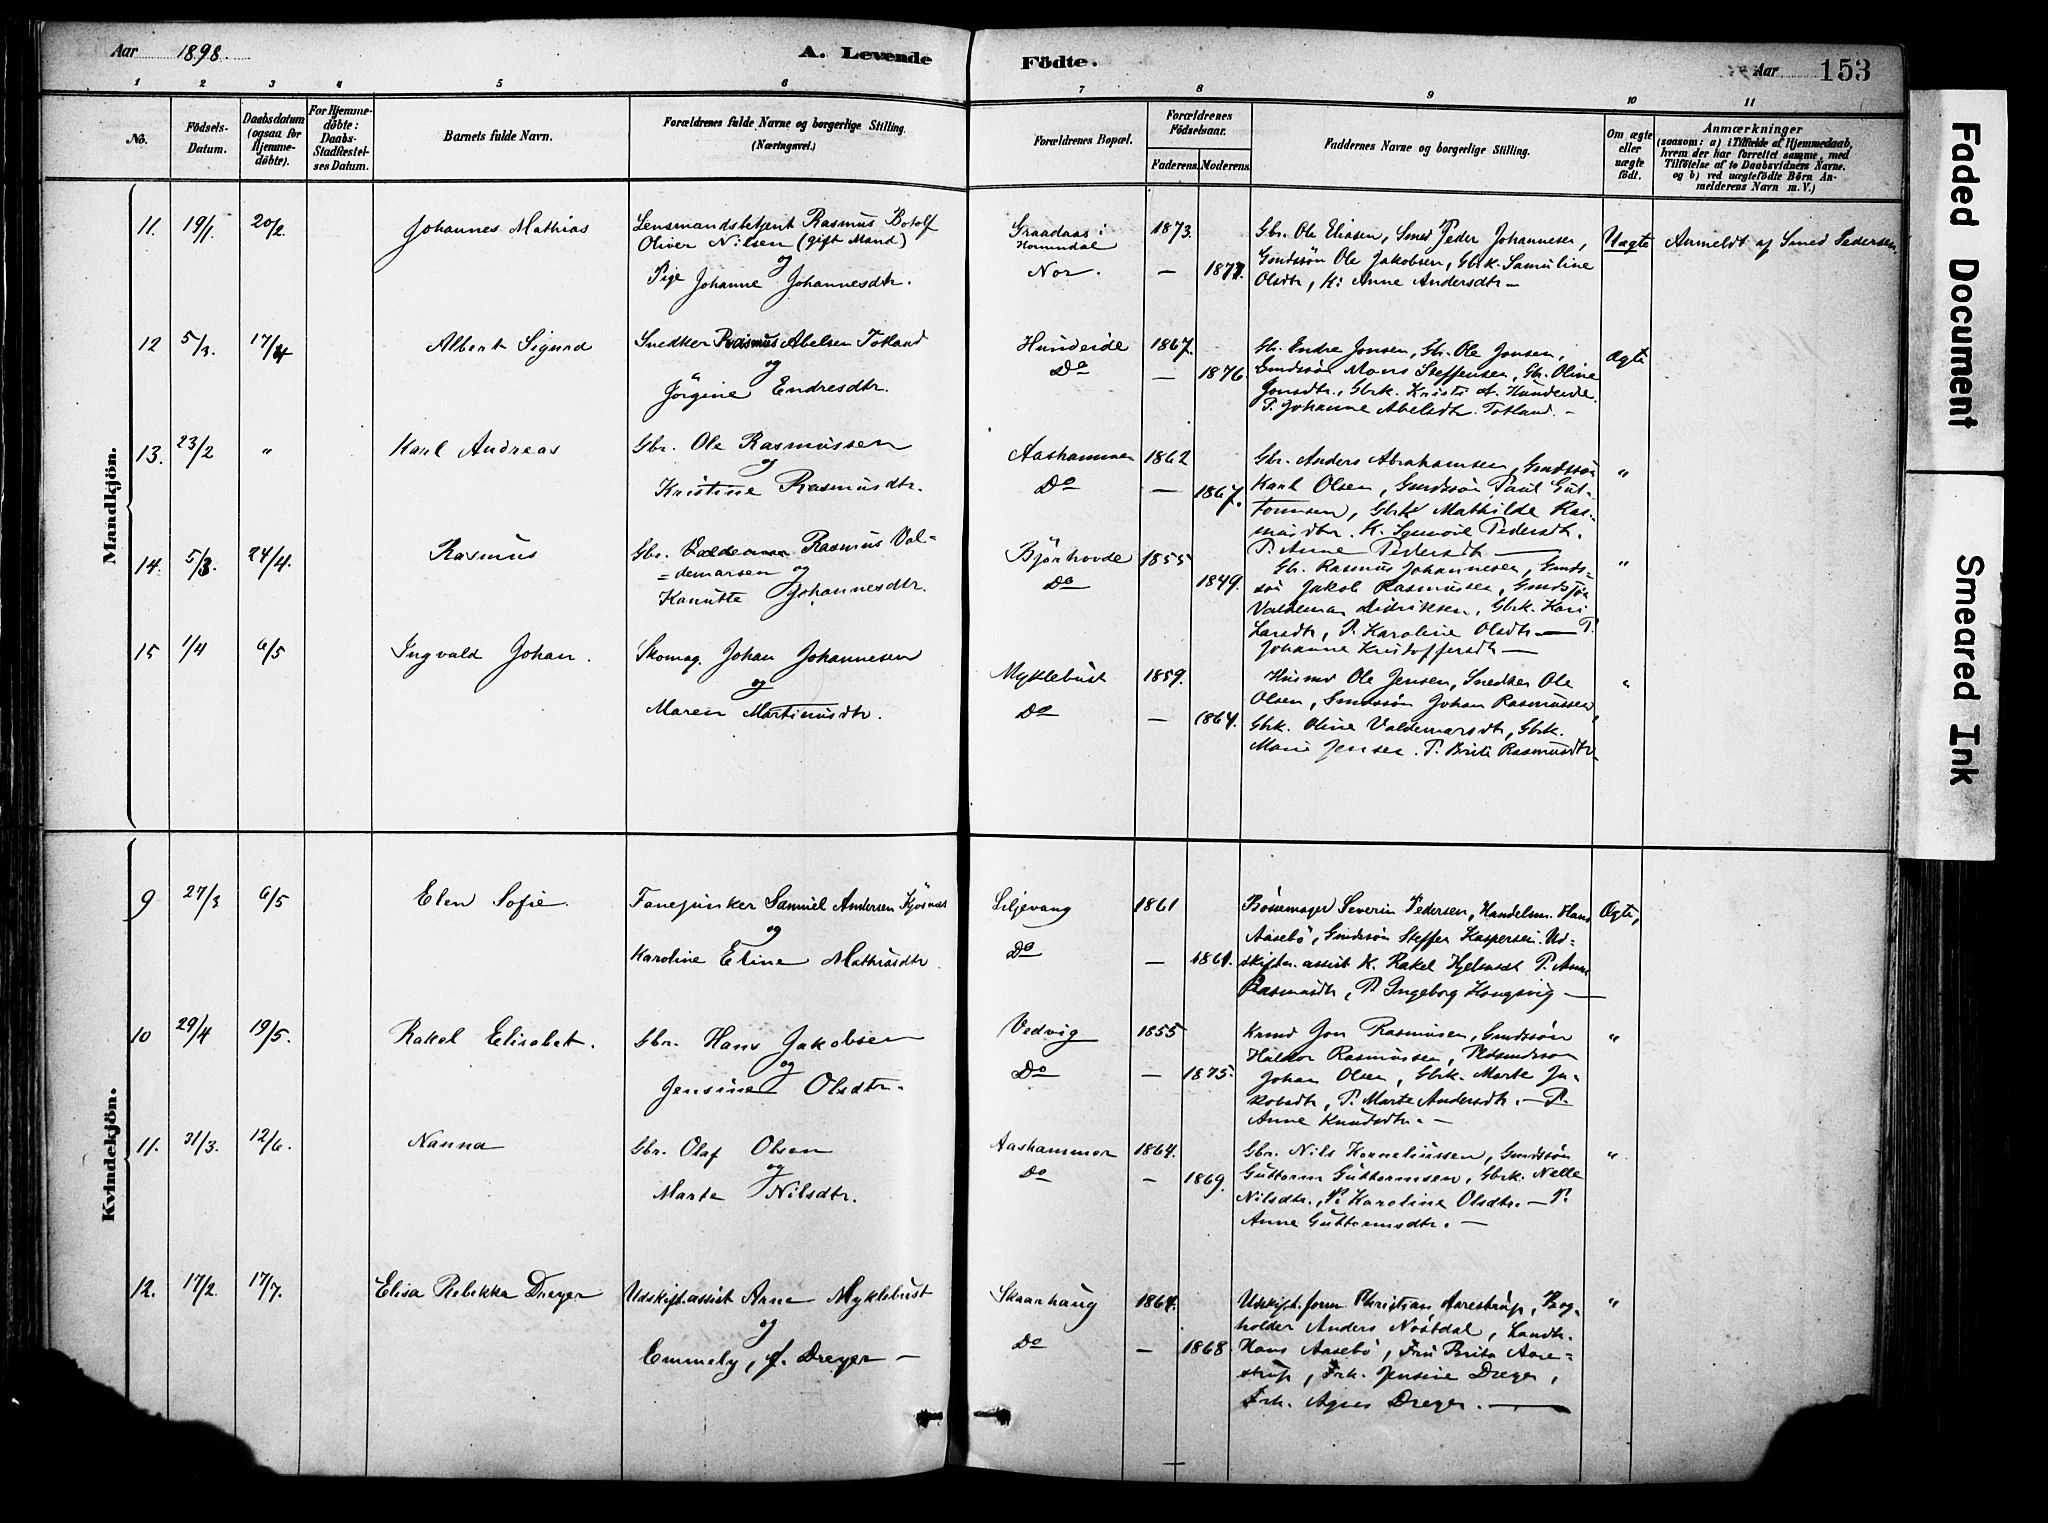 Aar 1898. A. Levende Födte. Aar 153
1 2 3 4 5 6 7 8 9 10 11
No. Födsels-Datum. Daabsdatum (ogsaa for Hjemmedöbte). For Hjemmedöbte: Daabs-Stadfæstelses Datum. Barnets fulde Navn. Forældrenes fulde Navne og borgerlige Stilling. (Næringsvei.) Forældrenes Bopæl. Forældrenes Födselsaar. Faderens. Moderens. Faddernes Navne og borgerlige Stilling. Om ægte eller uægte födt. Anmærkninger (saasom: a) i Tilfælde af Hjemmedaab, hvem der har forrettet samme, med Tilföielse af to Daabsvidners Navne. og b) ved uægtefödte Börn Anmelderens Navn m. V.)
Mandkjön.
11. 19/1. 20/2. Johannes Mathias
Lensmandsbetjent Rasmus Botolf
Oliver Nilsen (gift Mand)
og
Pige Johanne Johannesdtr.
Graadaas i
Hornindal
Nor.
1873.
— 1877.
Gbr. Ole Eliasen, Smed Peder Johannesen,
Gmdssön Ole Jakobsen, Gbrk. Samuline
Olsdtr, K: Anne Andersdtr —
Uægte
Anmeldt af Smed Pedersen
12 5/3. 17/4 Albert Sigurd
Snedker Rasmus Abelsen Totland
og
Jörgine Endresdtr.
Hundeide
Do
1867.
— 1876
Gbr. Endre Jonsen, Gbr. Ole Jonsen,
Gmdssön Mons Steffensen, Gbr. Oline
Jonsdtr., Gbrk. Kristi A. Hundeide.
P. Johanne Abelsdtr. Totland. —
Ægte
13. 23/2 " Karl Andreas
Gbr. Ole Rasmussen
og
Kristine Rasmusdtr.
Aashammer
Do
1862
— 1867.
Gbr. Anders Abrahamsen, Gmdssön
Karl Olsen, Gmdssön Paul Gut-
tormsen, Gbrk Mathilde Ras-
musdtr. K. Synnöve Pedersdtr.
P. Anne Pedersdtr —
"
14. 5/3. 24/4. Rasmus
Gbr. Rasmus Val-
=demarsen og
Kanutte Johannesdtr.
Björhovde
Do
1855
1849.
Gbr. Rasmus Johannesen, Gmds-
sön Jakob Rasmussen, Gmdssön
Valdemar Didriksen, Gbrk. Kari
Larsdtr, P. Karoline Olsdtr — P.
Johanne Kristoffersdtr —
"
15 1/4 6/5 Ingvald Johan.
Skomag. Johan Johannesen
og
Maren Martinusdtr.
Myklebust
Do
1859.
— 1864.
Husmd Ole Jensen, Snedker Ole
Olsen, Gmdssön Johan Rasmussen
Gbrk. Oline Valdemarsdtr, Gbrk.
Marie Jensen. P. Brite Rasmusdtr.
"
Kvindekjön.
9 27/3 6/5 Elen Sofie.
Fanejunker Samuel Andersen Kjösnæs
og
Karoline Eline Mathiasdtr
Liljevang
Do
1861
— 1861.
Bössemager Severin Pedersen, Handelsm. Hans
Aasebö, Gmdssön Steffen Kaspersen. Ud-
skiftn. assist K. Rakel P. Anne
Rasmusdtr, P. Ingeborg Kongsvig —
Ægte,
10 29/4 19/5. Rakel Elisabet.
Gbr. Hans Jakobsen
og
Jensine Olsdtr.
Vedvig
Do
1855
— 1875.
Jon Rasmusen, Gmdssön
Haldor Rasmussen,
Johan Olsen, Gbrk. Marte Ja-
kobsdtr, P. Marte Andersdtr. — P.
Anne Knudsdtr. —
"
11. 31/3. 12/6. Nanna
Gbr. Olaf Olsen
og
Marte Nilsdtr.
Aashammer
Do
1864.
— 1869.
Gbr. Nils Korneliussen, Gmdssön
Guttorm Guttormsen, Gbrk. Nelle
Nilsdtr., P. Karoline Olsdtr. — P.
Anne Guttormsdtr. —
"
12. 17/2. 17/7. Elisa Rebekka Dreyer
Udskift.assist Arne Myklebust
og
Emmely, f. Dreyer —
Skaarhaug
Do
1864.
— 1868
Udskift.form Christian Aarestrup, Bog-
holder Anders Nöstdal, Landh.
Hans Aasebö, Fru Brita Aare-
strup, Frk. Jensine Dreyer,
Frk. Agnes Dreyer. —
"
Faded Document
Smeared Ink